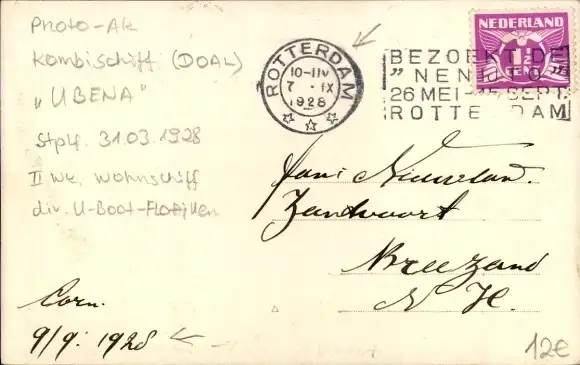 Photo-AK
Kombischiff (DOAL)
"UBENA"
Stplf. 31.03.1928
II WK. Wohnschiff
div. U-Boot-Flotillen
ROTTERDAM
10-11V
7 IX
1928
BEZOEKT DE
"NENIJTO"
26 MEI-15 SEPT.
ROTTERDAM
NEDERLAND
1½
CENT
Jani
Zandvoort
Breezand
N H.
Corn.
9/9: 1928
12€